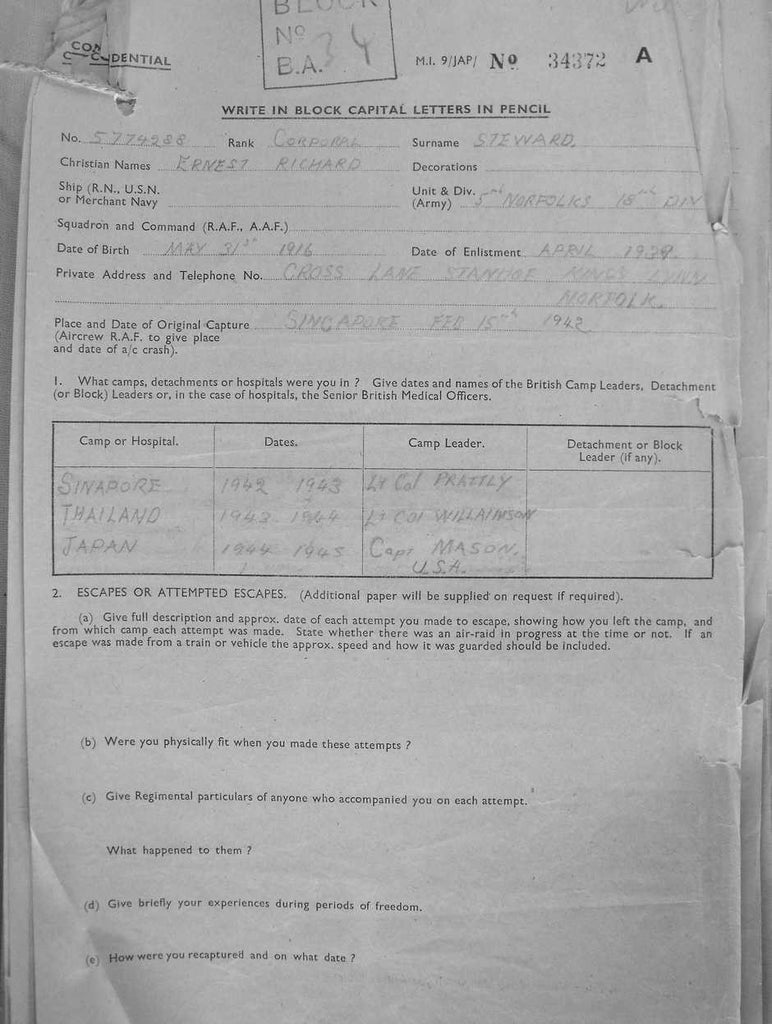 BLOCK
CON
C DENTIAL
No
34
B.A.
M.I. 9/JAP/ No 34372 A
WRITE IN BLOCK CAPITAL LETTERS IN PENCIL
No. 5774288 Rank CORPORAL Surname STEWARD.
Christian Names ERNEST RICHARD Decorations
Ship (R.N., U.S.N. or Merchant Navy
Unit & Div. (Army) 5th NORFOLKS 18th DIV
Squadron and Command (R.A.F., A.A.F.)
Date of Birth MAY 31st 1916 Date of Enlistment APRIL 1939.
Private Address and Telephone No. CROSS LANE STANHOE KINGS LYNN
NORFOLK.
Place and Date of Original Capture SINGAPORE FEB 15th 1942
(Aircrew R.A.F. to give place
and date of a/c crash).
1. What camps, detachments or hospitals were you in ? Give dates and names of the British Camp Leaders, Detachment
(or Block) Leaders or, in the case of hospitals, the Senior British Medical Officers.
Camp or Hospital. Dates. Camp Leader. Detachment or Block
Leader (if any).
SINAPORE 1942 1943 Lt Col PRATTLY
THAILAND 1943 1944 Lt Col WILLAIMSON
JAPAN 1944 1945 Capt MASON.
U.S.A.
2. ESCAPES OR ATTEMPTED ESCAPES. (Additional paper will be supplied on request if required).
(a) Give full description and approx. date of each attempt you made to escape, showing how you left the camp, and
from which camp each attempt was made. State whether there was an air-raid in progress at the time or not. If an
escape was made from a train or vehicle the approx. speed and how it was guarded should be included.
(b) Were you physically fit when you made these attempts ?
(c) Give Regimental particulars of anyone who accompanied you on each attempt.
What happened to them ?
(d) Give briefly your experiences during periods of freedom.
(e) How were you recaptured and on what date ?